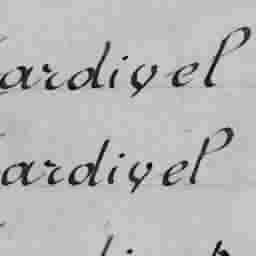 ardivel
ardivel